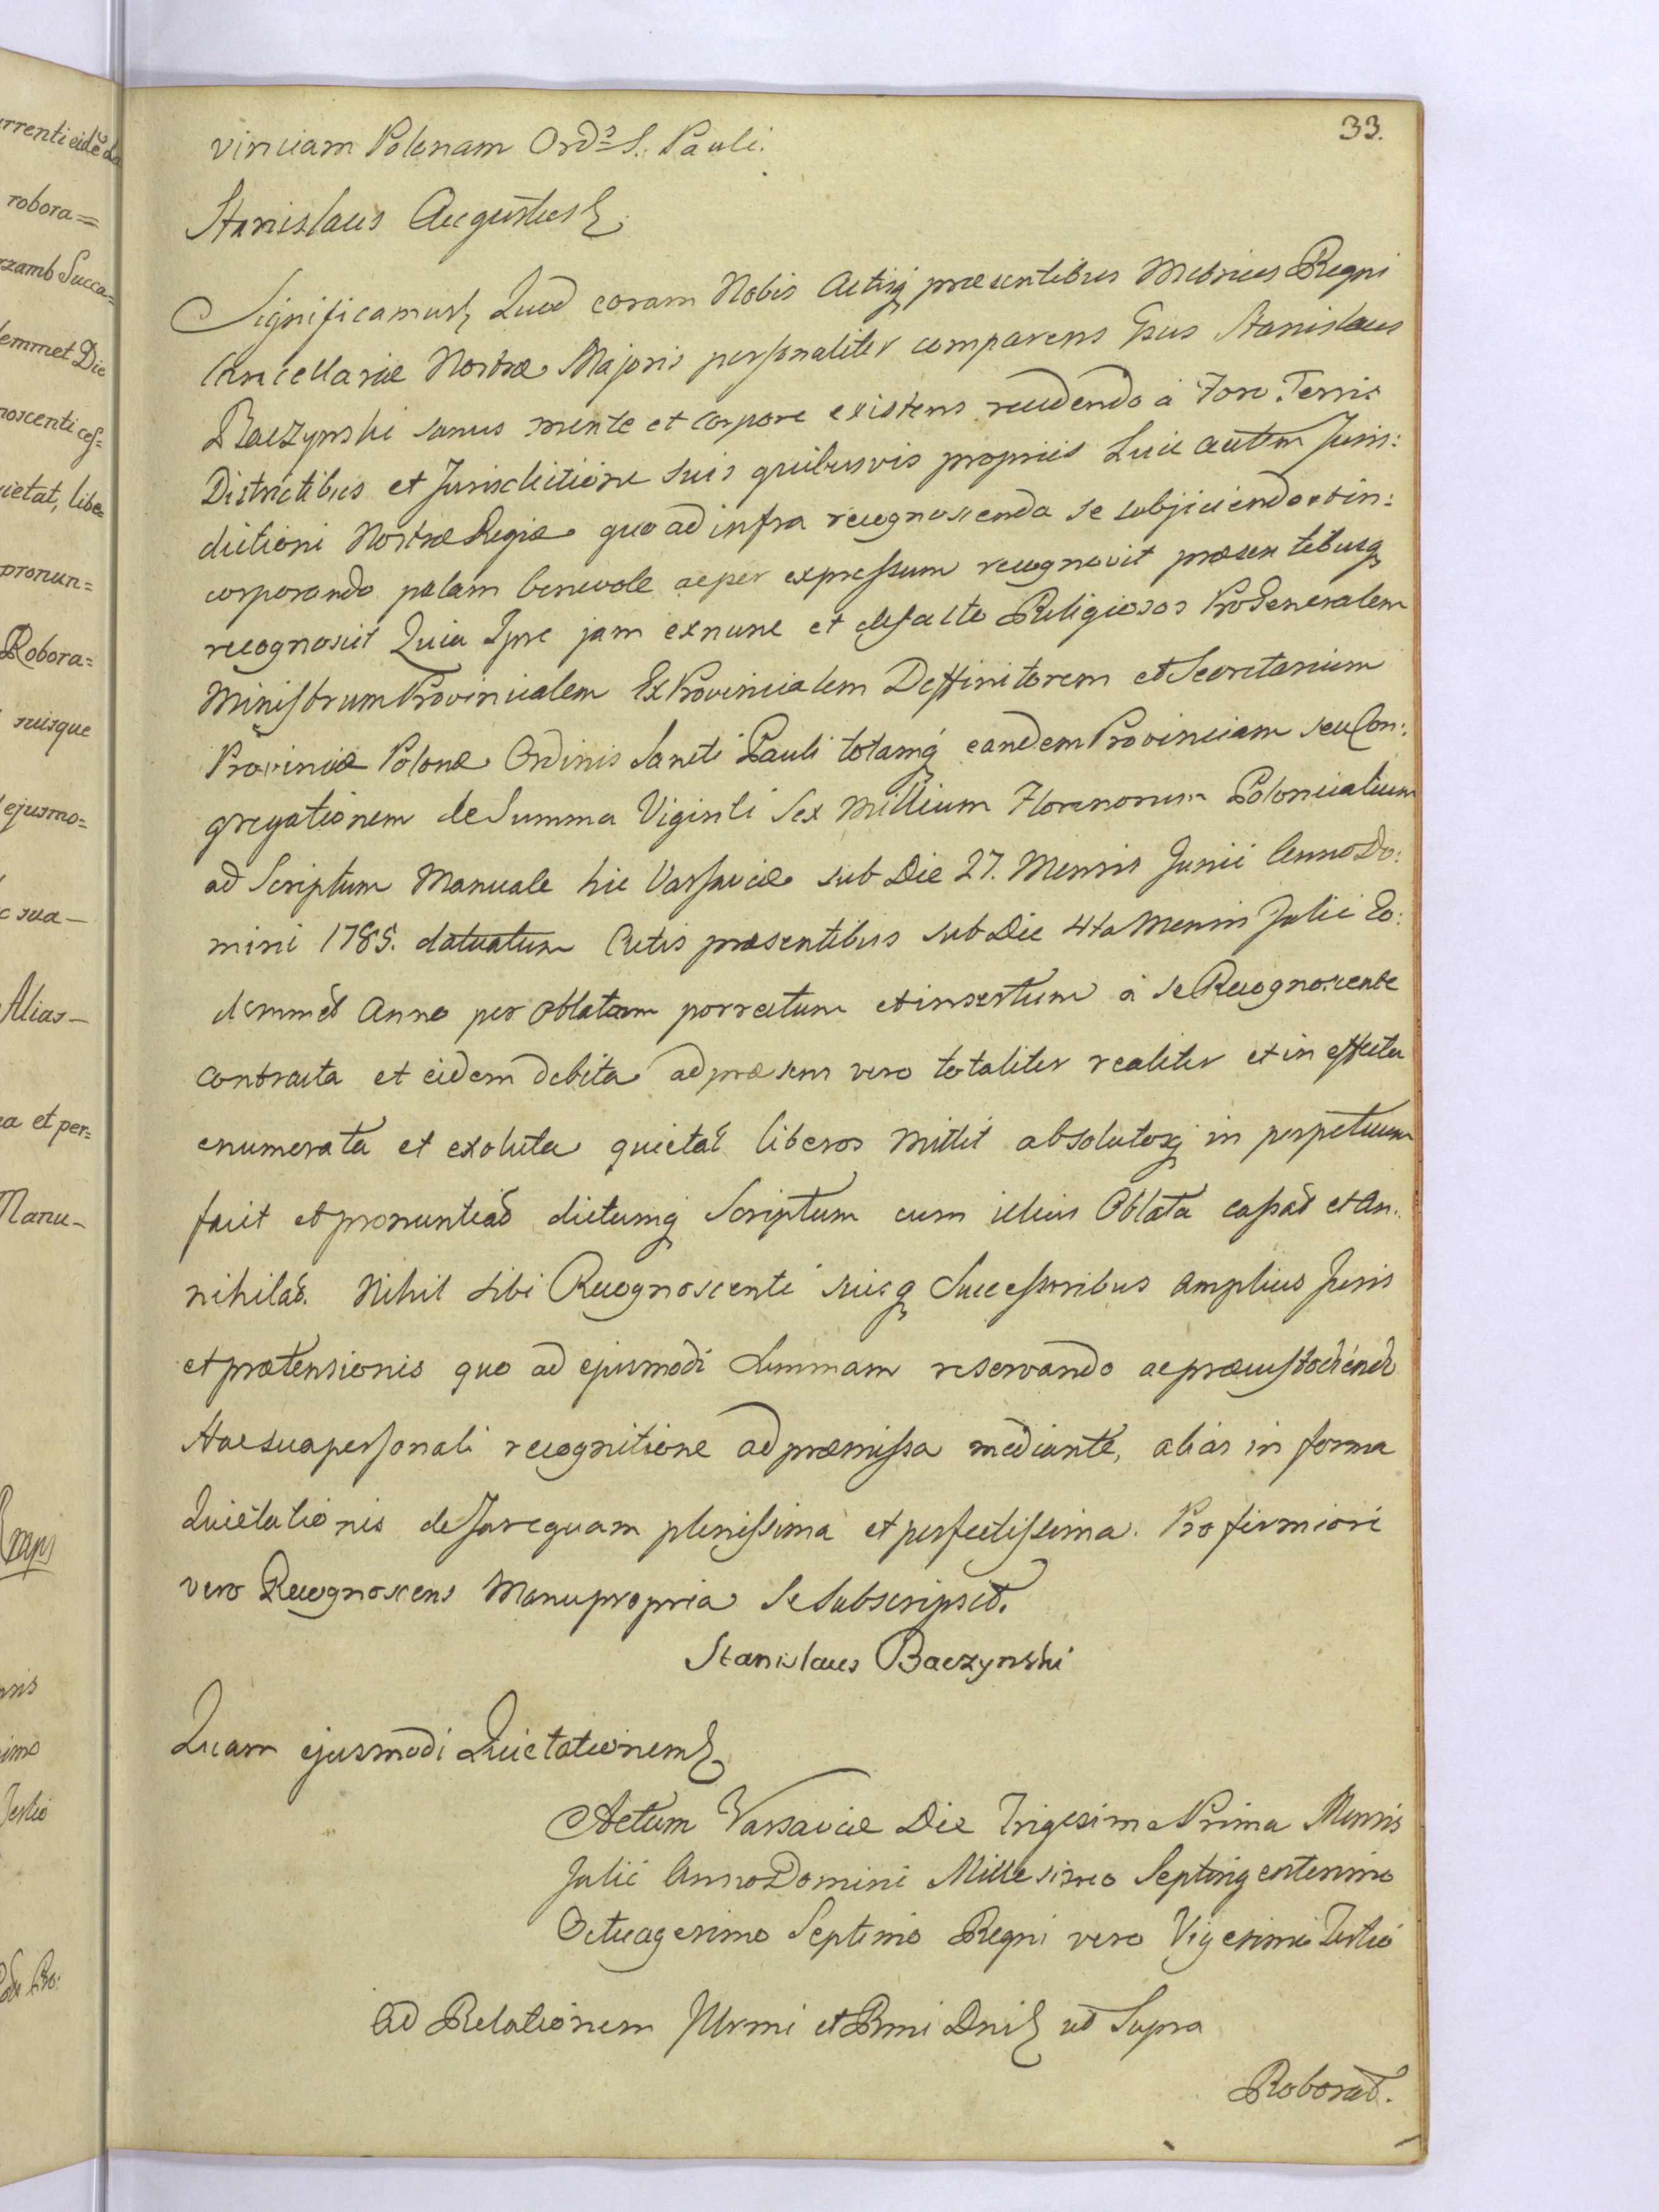 33.
vinciam Polonam Ord=s S. Pauli.
Stanislaus Augustus
Significamus Quod coram Nobis Actisq presentibus Metrices Regni
Cancellariæ Nostræ Majoris personaliter comparens Gsus Stanislaus
Baczynski sanus mente et corpore existens recedendo à Foro Terris
Districtibus et Jurisdictione suis quibusvis propriis Suie autem Juris:
dictioni Nostræ Regiæ quo ad infra recognoscenda se subjiciendo et in:
corporando palam benevole ac per expressum recognovit præsentibusq
recognoscit Quia Ipse jam ex nunc et de facto Religiosos ProGeneralem
Ministrum Provincialem ExProvincialem Deffinitorem et Secretarium
Provinciæ Polonæ Ordinis Sancti Pauli totamq eandem Provinciam seu Con:
gregationem de Summa Viginti Sex Millium Florenorum Polonicalium
ad Scriptum Manuale hic Varsaviæ sub Die 27. Mensis Junii Anno Do:
mini 1785. datuatum Actis præsentibus sub Die 4ta Mensis Julii Eo:
demmet Anno per Oblatam porrectum et insertum à se Recognoscente
contracta et eidem debita ad præsens vero totaliter realiter et in effectu
enumerata et exoluta quietat liberos mittit absolutosq in perpetuum
facit et pronuntiat dictumq Scriptum cum illius Oblata cassat et An:
nihilat. Nihil sibi Recognoscenti suisq Successoribus amplius Juris
et prætensionis quo ad ejusmodi Summam reservando ac præcustodiendo
Hac sua personali recognitione ad præmissa mediante, alias in forma
Quietationis de Jure quam plenissima et perfectissima. Pro firmiori
vero Recognoscens Manu propria Se Subscripsit.
Stanislaus Baczynski
Quam ejusmodi Quietationem
Actum Varsaviæ Die Trigesima Prima Mensis
Julii Anno Domini Millesimo Septingentesimo
Octuagesimo Septimo Regni vero Vigesimo Tertio
Ad Relationem Illrmi et Rmi Dni ut Supra
Roborat.
urrenti eidē
robora=
Succa=
emmet Die
noscenti ces=
uietat, libe=
pronun=
Robora=
suisque
ejusmo=
sua—
Alias—
et per=
Manu—